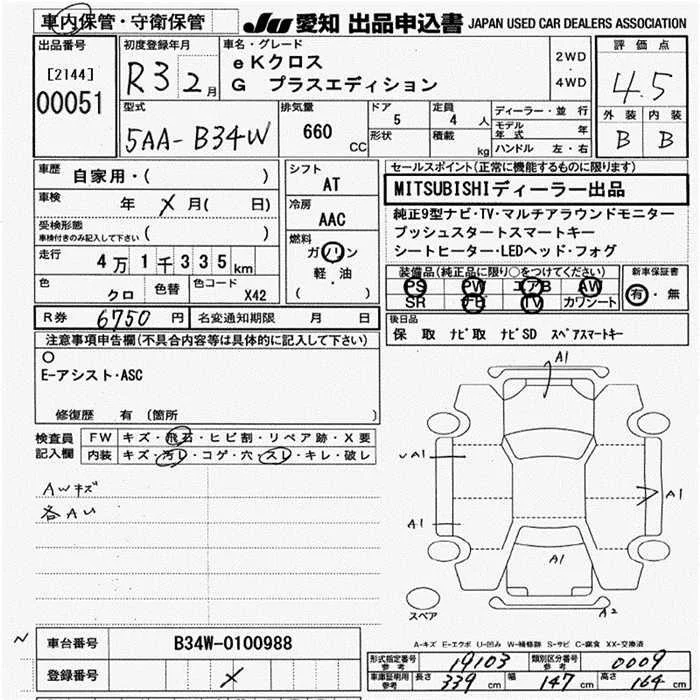 車内保管・守衛保管
JU 愛知 出品申込書 JAPAN USED CAR DEALERS ASSOCIATION
出品番号
[2144]
00051
初度登録年月
R3 2月
車名・グレード
eKクロス
G プラスエディション
2WD
・
4WD
評価点
4.5
外装 内装
B B
型式
5AA-B34W
排気量
660 CC
ドア
5
形状
定員
4 人
積載
kg
ディーラー・並行
モデル年式 年
ハンドル 左・右
車歴
自家用・( )
車検
年 × 月( 日)
受検形態
車検付きのみ記入して下さい ( )
走行
4万1千335km
色
クロ
色替
色コード
X42
シフト
AT
冷房
AAC
燃料
ガソリン
軽・油
( )
セールスポイント(正常に機能するものに限ります)
MITSUBISHIディーラー出品
純正9型ナビ・TV・マルチアラウンドモニター
プッシュスタートスマートキー
シートヒーター・LEDヘッド・フォグ
装備品(純正品に限り○をつけてください)
PS PW エアB AW
SR TV カワシート
新車保証書
有・無
R券 6750 円 名変通知期限 月 日
後日品
保 取 ナビ取 ナビSD スペアスマートキー
注意事項申告欄(不具合内容等は具体的に記入して下さい)
○
E-アシスト・ASC
修復歴 有 (箇所 )
検査員記入欄
FW キズ・飛石・ヒビ割・リペア跡・X要
内装 キズ・汚レ・コゲ・穴・スレ・キレ・破レ
AWキズ
各AU
A1
A1
A1
A1
A1
A2
スペア
A-キズ E-エクボ U-凹み W-補修跡 S-サビ C-腐食 XX-交換済
車台番号 B34W-0100988
登録番号 ×
型式指定番号 参考 19103 類別区分番号 参考 0009
車庫証明用 参考 長さ 339 cm 幅 147 cm 高さ 164 cm